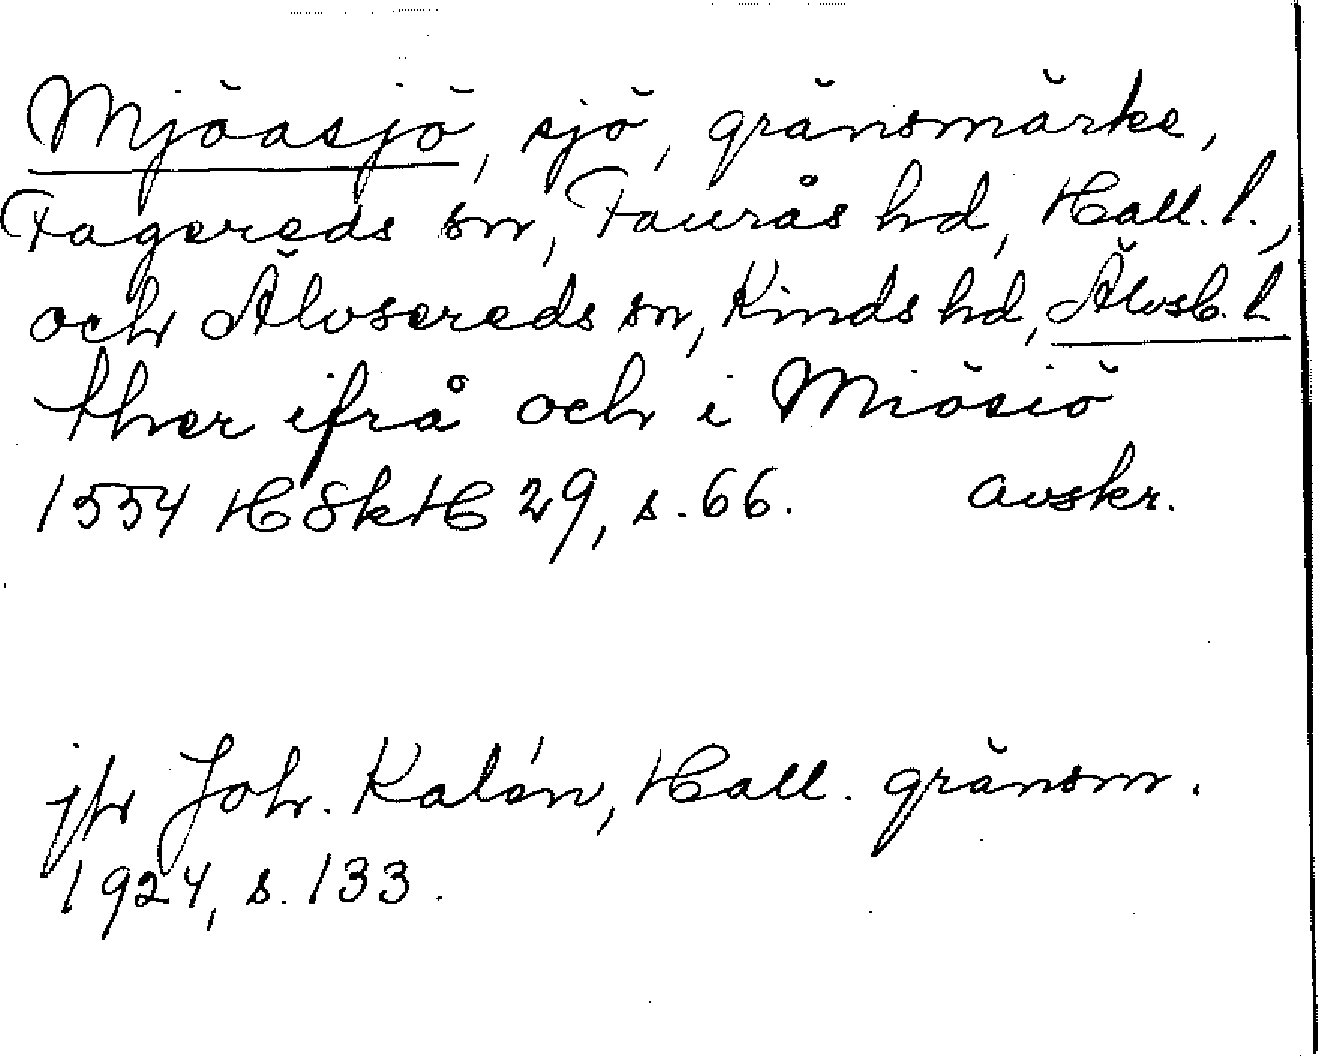 Mjöasjö, sjö, gränsmärke,
Fagereds sn, Faurås hd, Hall. l.,
och Älvsereds sn, Kinds hd, Älvsb. l
ther ifrå och i Miösiö
1554 HSkH 29, s. 66. avskr.
jfr Joh. Kalén, Hall. gränsm.
1924, s. 133.